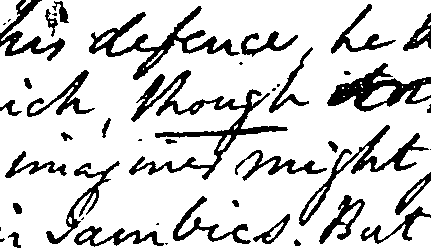 his defence, he
ich, though
imagines might
Iambics. But